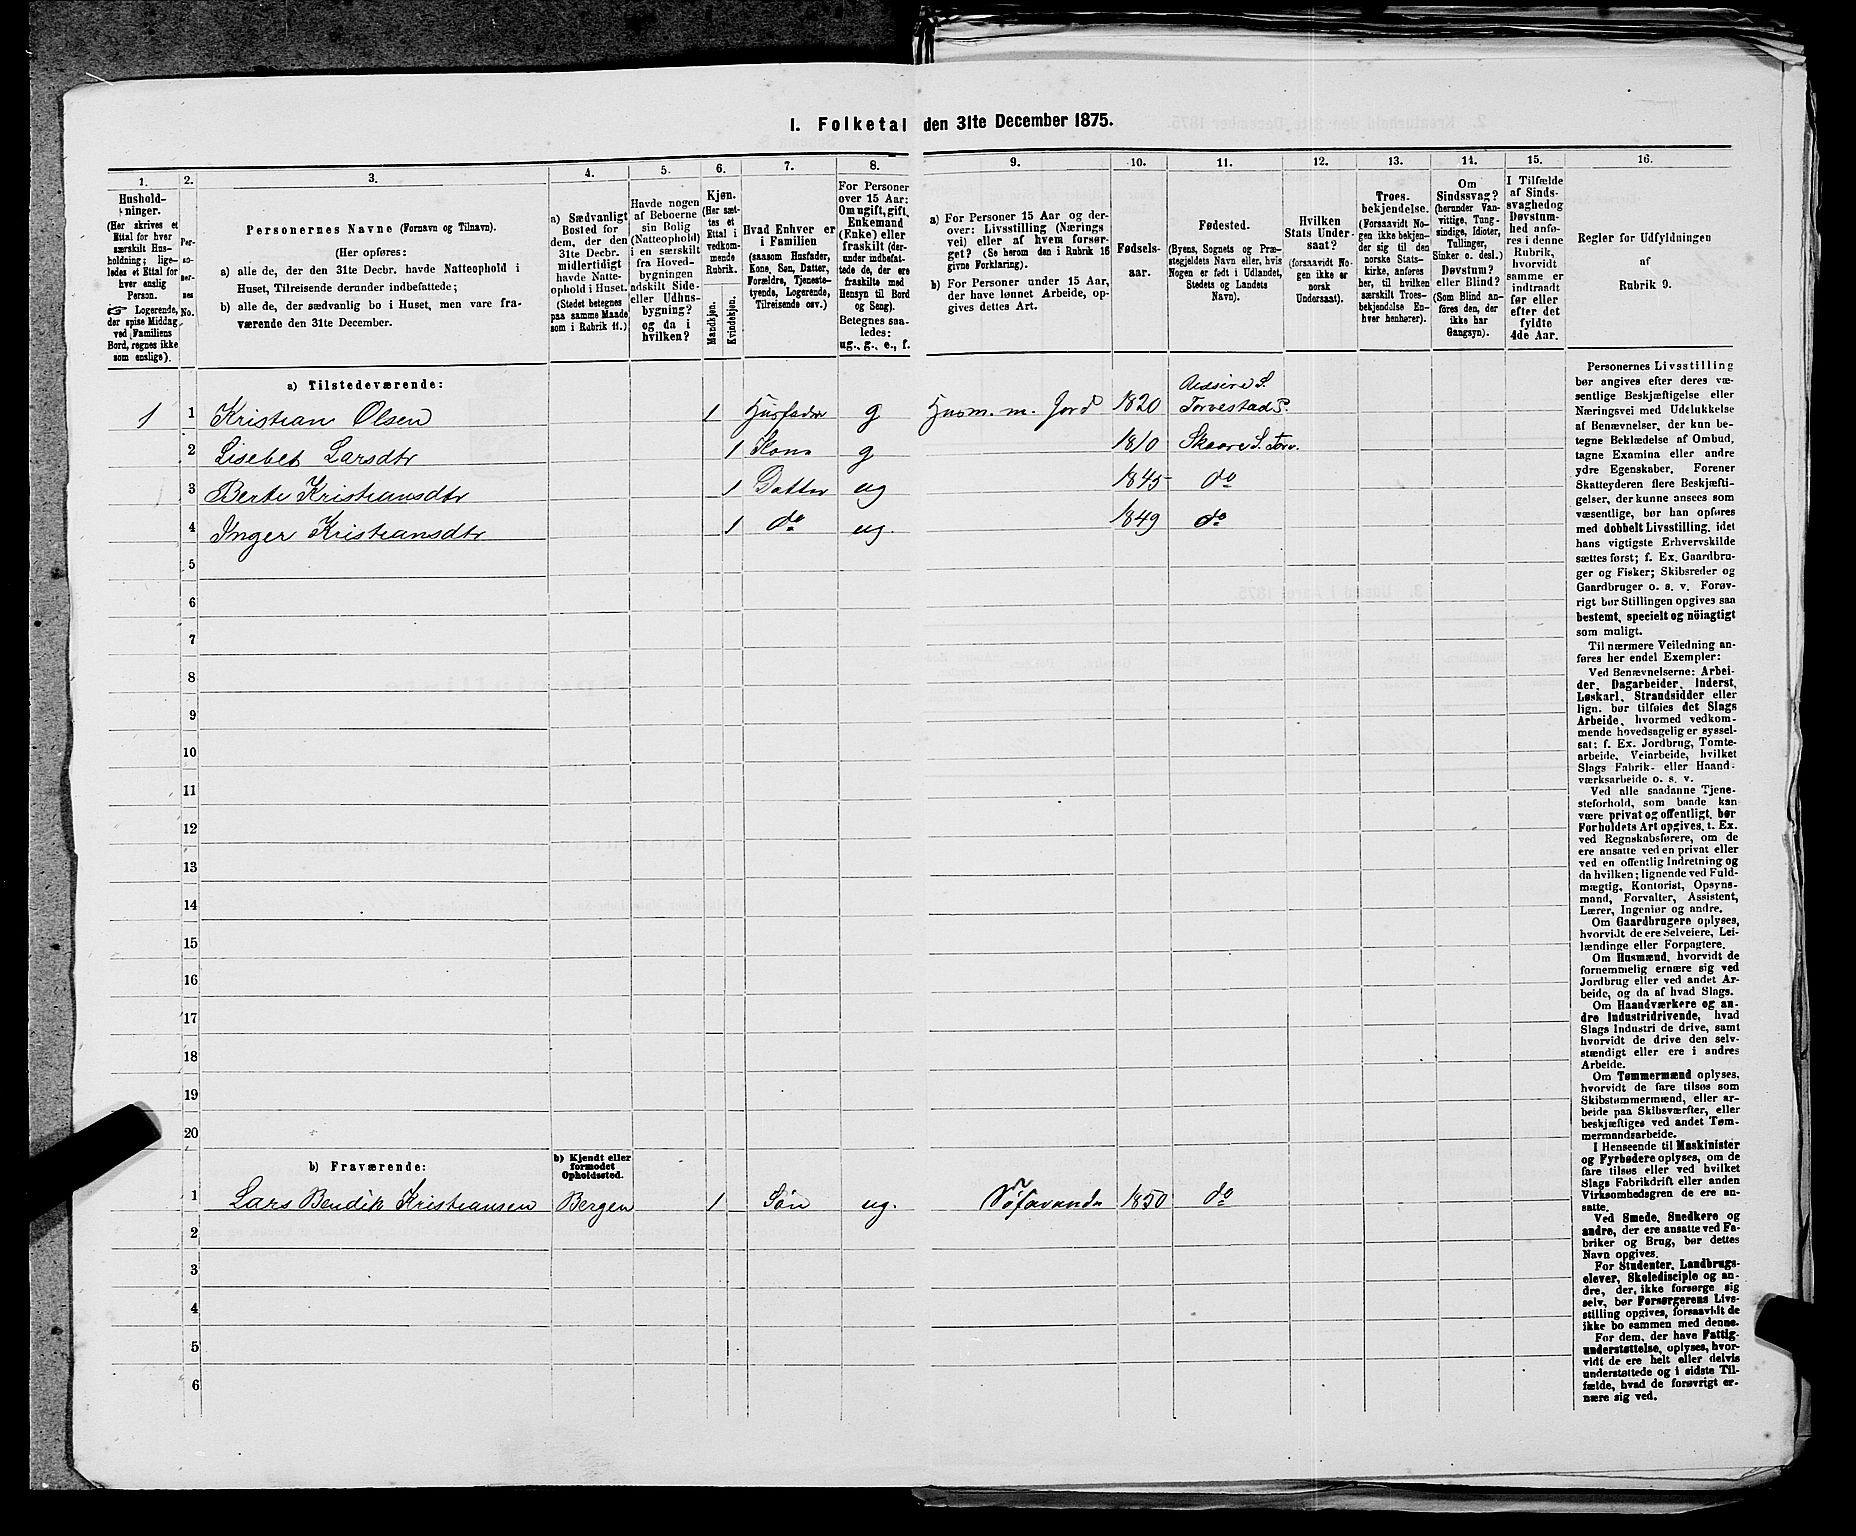 1. Folketal den 31te December 1875.
1. 2. 3. 4. 5. 6. 7. 8. 9. 10. 11. 12. 13. 14. 15. 16.
Hushold-
ninger.
(Her skrives et
Ettal for hver
særskilt Hus-
holdning; lige-
ledes et Ettal for
hver enslig
Person.
☞ Logerende,
der spise Middag
ved Familiens
Bord, regnes ikke
som enslige).
Per-
so-
ner-
nes
No.
Personernes Navne (Fornavn og Tilnavn).
(Her opføres:
a) alle de, der den 31te Decbr. havde Natteophold i
Huset, Tilreisende derunder indbefattede;
b) alle de, der sædvanlig bo i Huset, men vare fra-
værende den 31te December.
a) Sædvanligt
Bosted for
dem, der den
31te Decbr.
midlertidigt
havde Natte-
ophold i Huset.
(Stedet betegnes
paa samme Maade
som i Rubrik 11.)
Havde nogen
af Beboerne
sin Bolig
(Natteophold)
i en særskilt
fra Hoved-
bygningen
adskilt Side-
eller Udhus-
bygning?
og da i
hvilken?
Kjøn.
(Her sæt-
tes et
Ettal i
vedkom-
mende
Rubrik.
Mandkjøn.
Kvindekjøn.
Hvad Enhver er
i Familien
(saasom Husfader,
Kone, Søn, Datter,
Forældre, Tjeneste-
tyende, Logerende,
Tilreisende osv.)
For Personer
over 15 Aar:
Om ugift, gift,
Enkemand
(Enke) eller
fraskilt (der-
under indbefat-
tede de, der ere
fraskilte med
Hensyn til Bord
og Seng).
Betegnes saa-
ledes:
ug., g., e., f.
a) For Personer 15 Aar og der-
over: Livsstilling (Nærings
vei) eller af hvem forsør-
get? (Se herom den i Rubrik 16
givne Forklaring).
b) For Personer under 15 Aar,
der have lønnet Arbeide, op-
gives dettes Art.
Fødsels-
aar.
Fødested.
(Byens, Sognets og Præ-
stegjeldets Navn eller, hvis
Nogen er født i Udlandet,
Stedets og Landets
Navn).
Hvilken
Stats Under-
saat?
(forsaavidt No-
gen ikke er
norsk
Undersaat).
Troes-
bekjendelse.
(Forsaavidt No-
gen ikke bekjen-
der sig til den
norske Stats-
kirke, anføres
her, til hvilken
særskilt Troes-
bekjendelse En-
hver henhører).
Om
Sindssvag?
(herunder Van-
vittige, Tung-
sindige, Idioter,
Tullinger,
Sinker o. desl.)
Døvstum?
eller Blind?
(Som Blind an-
føres den, der
ikke har
Gangsyn).
I Tilfælde
af Sinds-
svaghed og
Døvstum-
hed anfø-
res i denne
Rubrik,
hvorvidt
samme er
indtraadt
før eller
efter det
fyldte
4de Aar.
Regler for Udfyldningen
af
Rubrik 9.
a) Tilstedeværende:
1 1 Kristian Olsen 1 Husfader g Husm. m. Jord 1820 S. Torvestad P.
2 Lisebet Larsdtr 1 Kone g 1810 Skaare S. Torv.
3 Berte Kristiansdtr 1 Datter ug 1845 do
4 Inger Kristiansdtr 1 do ug. 1849 do
5
6
7
8
9
10
11
12
13
14
15
16
17
18
19
20
b) Fraværende:
b) Kjendt eller
formodet
Opholdssted.
1 Lars Bendik Kristiansen Bergen 1 Søn ug. Søfarende 1850 do
2
3
4
5
6
Personernes Livsstilling
bør angives efter deres væ-
sentlige Beskjæftigelse eller
Næringsvei med Udelukkelse
af Benævnelser, der kun be-
tegne Beklædelse af Ombud,
tagne Examina eller andre
ydre Egenskaber. Forener
Skatteyderen flere Beskjæfti-
gelser, der kunne ansees som
væsentlige, bør han opføres
med dobbelt Livsstilling, idet
hans vigtigste Erhvervskilde
sættes først; f. Ex. Gaardbru-
ger og Fisker; Skibsreder og
Gaardbruger o. s. v. Forøv-
rigt bør Stillingen opgives saa
bestemt, specielt og nöiagtigt
som muligt.
Til nærmere Veiledning an-
føres her endel Exempler:
Ved Benævnelserne: Arbei-
der, Dagarbeider, Inderst,
Løskarl, Strandsidder eller
lign. bør tilføies det Slags
Arbeide, hvormed vedkom-
mende hovedsagelig er syssel-
sat; f. Ex. Jordbrug, Tomte-
arbeide, Veiarbeide, hvilket
Slags Fabrik- eller Haand-
værksarbeide o. s. v.
Ved alle saadanne Tjene-
steforhold, som baade kan
være privat og offentligt, bør
Forholdets Art opgives, t. Ex.
ved Regnskabsførere, om de
ere ansatte ved en privat eller
ved en offentlig Indretning og
da hvilken; lignende ved Fuld-
mægtig, Kontorist, Opsyns-
mand, Forvalter, Assistent,
Lærer, Ingeniør og andre.
Om Gaardbrugere oplyses,
hvorvidt de ere Selveiere, Lei-
lændinge eller Forpagtere.
Om Husmænd, hvorvidt de
fornemmelig ernære sig ved
Jordbrug eller ved andet Ar-
beide, og da af hvad Slags.
Om Haandværkere og an-
dre Industridrivende, hvad
Slags Industri de drive, samt
hvorvidt de drive den selv-
stændigt eller ere i andres
Arbeide.
Om Tømmermænd oplyses,
hvorvidt de fare tilsøs som
Skibstømmermænd, eller ar-
beide paa Skibsværfter, eller
beskjæftiges ved andet Tøm-
mermandsarbeide.
I Henseende til Maskinister
og Fyrbødere oplyses, om de
fare tilsøs eller ved hvilket
Slags Fabrikdrift eller anden
Virksomhedsgren de ere an-
satte.
Ved Smede, Snedkere og
andre, der ere ansatte ved Fa-
briker og Brug, bør dettes
Navn opgives.
For Studenter, Landbrugs-
elever, Skoledisciple og an-
dre, der, ikke forsørge sig
selv, bør Forsørgerens Livs-
stilling opgives, forsaavidt de
ikke bo sammen med denne.
For dem, der have Fattig-
understøttelse, oplyses, hvor-
vidt de ere helt eller delvis
understøttede og i sidste Til-
fælde, hvad de forøvrigt er-
nære sig ved.